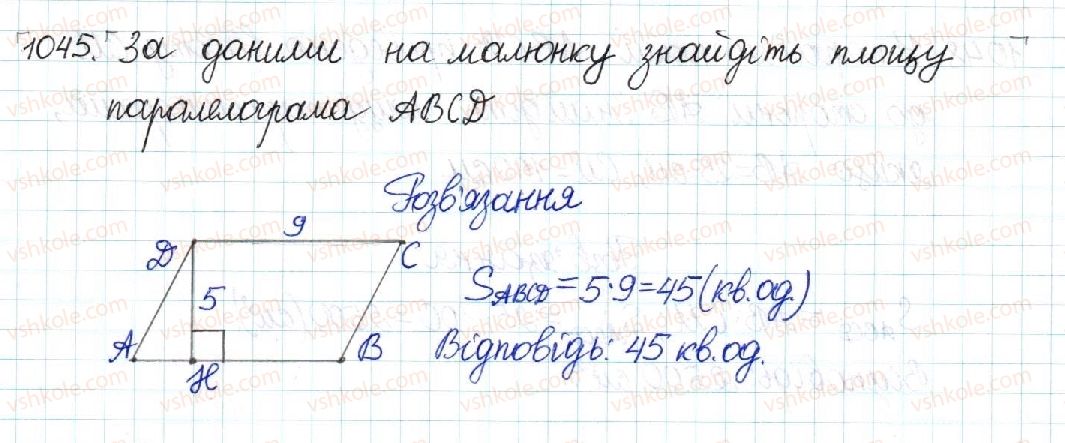 1045. За даними на малюнку знайдіть площу
паралелограма ABCD
Розв'язання
9
D
C
5
S ABCD = 5·9 = 45 (кв.од.)
A
H
B
Відповідь: 45 кв.од.
vshkole.com